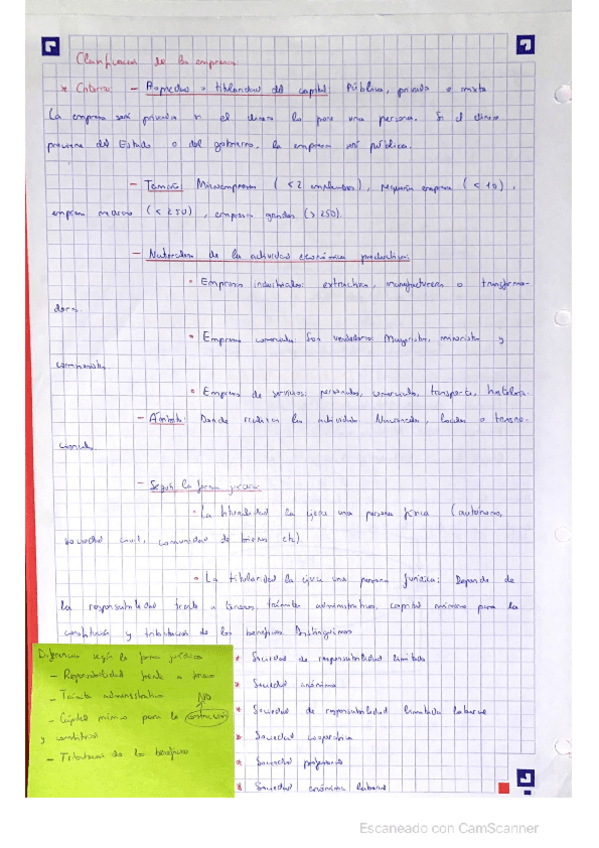 Clasificación de la empresa
* Criterios: - Propiedad o titularidad del capital: Pública, privada o mixta
La empresa será privada si el dinero lo pone una persona. Si el dinero
proviene del Estado o del gobierno, la empresa será pública.
- Tamaño: Microempresa (<2 empleados), pequeña empresa (<10),
empresa mediana (<250), empresa grandes (>250)
- Naturaleza de la actividad económica productiva:
• Empresas industriales: extractivas, manufactureras o transforma-
doras.
• Empresas comerciales: Son vendedoras: Mayoristas, minoristas y
• Empresas de servicios: personales, comerciales, transporte, hostelería.
- Ámbito: Donde realizan las actividades. Nacionales, locales o transna-
cionales
- Según la forma jurídica
• La titularidad la ejerce una persona física (autónomo,
sociedad civil, comunidad de bienes etc)
• La titularidad la ejerce una persona jurídica: Depende de
la responsabilidad frente a terceros, trámites administrativos, capital mínimo para la
constitución y tributación de los beneficios. Distinguimos
* Sociedad de responsabilidad limitada
* Sociedad anónima
* Sociedad de responsabilidad limitada laboral
* Sociedad cooperativa
* Sociedad profesional
* Sociedad anónima laboral
Diferencias según la forma jurídica
- Responsabilidad frente a terceros
- Trámite administrativo
NO
- Capital mínimo para la
y constitución
- Tributación de los beneficios
Escaneado con CamScanner